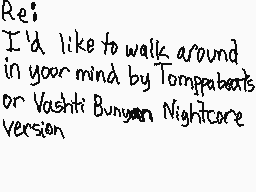 Re:
I'd like to walk around
in your mind by Tomppabeats
or Vashti Bunyan Nightcore
version